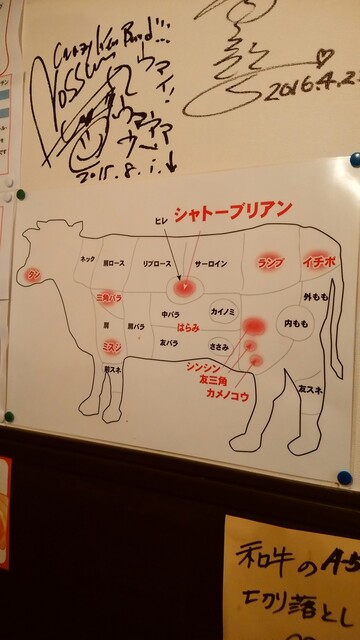 Crazy Ken Band!!!
ウマイ!
ウマウマ
ウ〜
2015.8.1.
2016.4.2
ヒレ
シャトーブリアン
タン
ネック
肩ロース
リブロース
サーロイン
ランプ
イチボ
三角バラ
外もも
中バラ
カイノミ
内もも
肩
肩バラ
はらみ
ミスジ
友バラ
ささみ
シンシン
友三角
カメノコウ
前スネ
友スネ
和牛のA-5
切り落とし